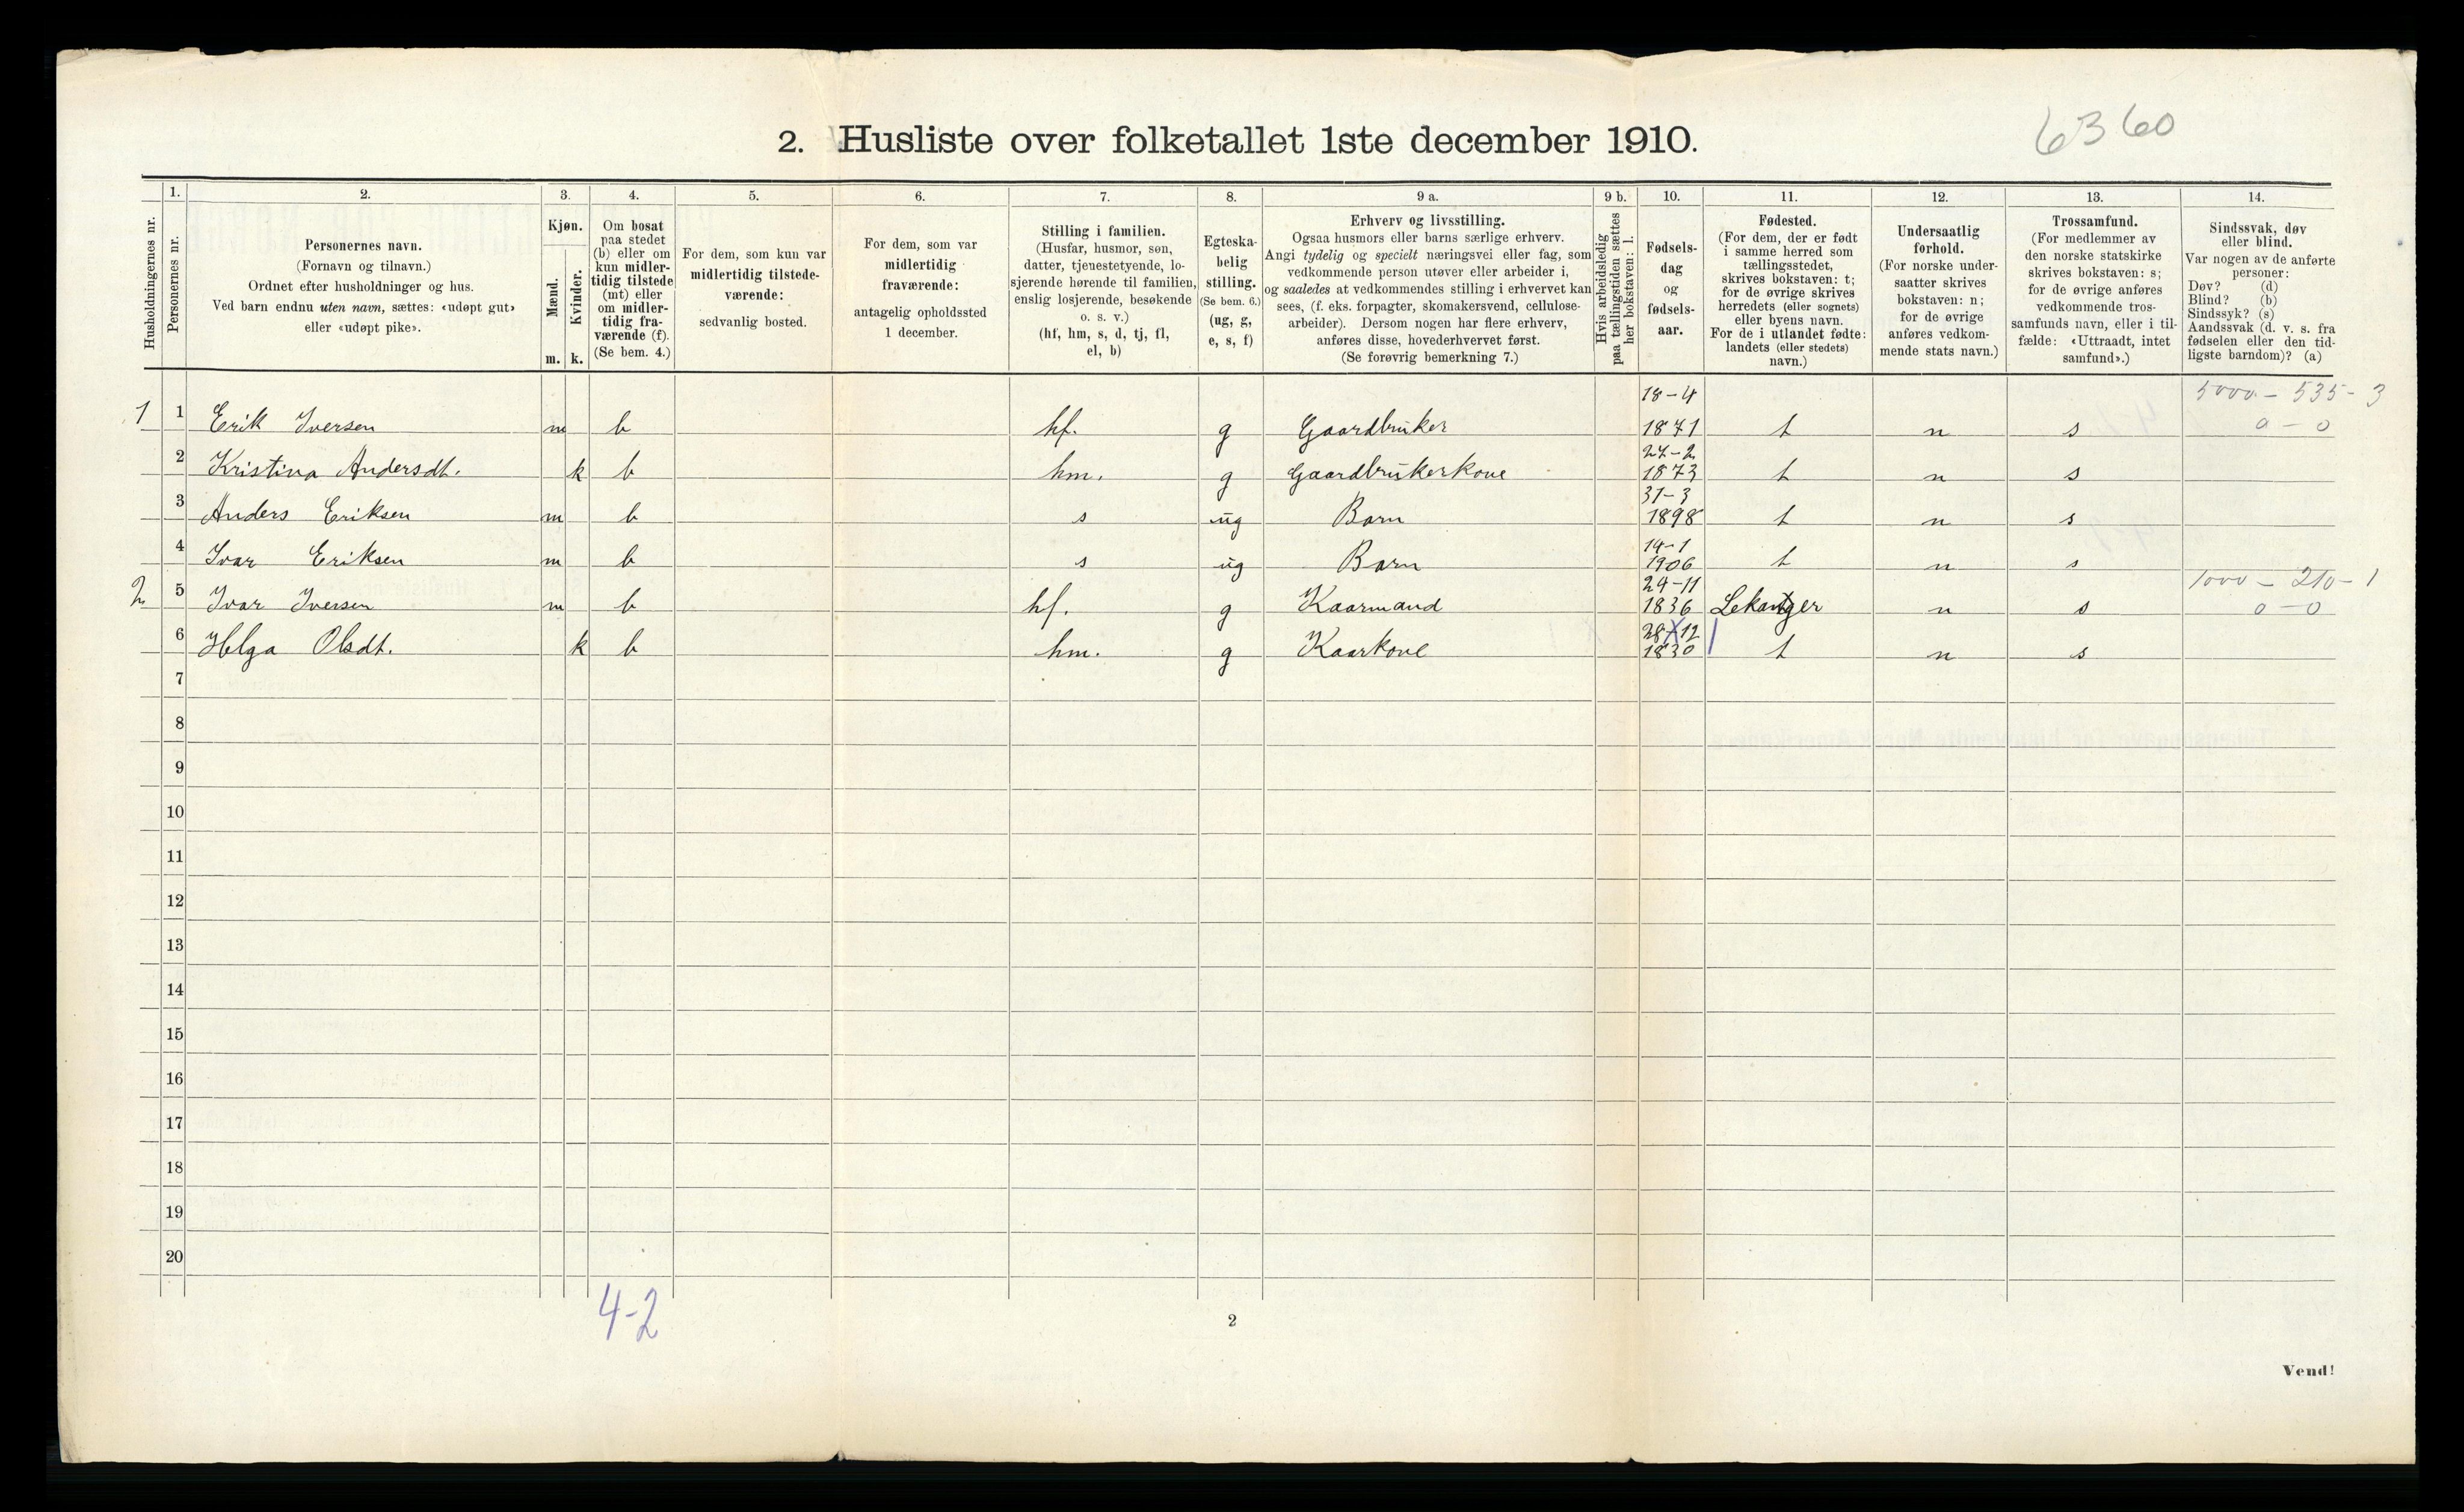 6360
2. Husliste over folketallet 1ste december 1910.
Husholdningernes nr.
1.
Personernes nr.
2.
Personernes navn.
(Fornavn og tilnavn.)
Ordnet efter husholdninger og hus.
Ved barn endnu uten navn, sættes: «udøpt gut»
eller «udøpt pike».
3.
Kjøn.
Mænd.
m.
Kvinder.
k.
4.
Om bosat
paa stedet
(b) eller om
kun midler-
tidig tilstede
(mt) eller
om midler-
tidig fra-
værende (f).
(Se bem. 4.)
5.
For dem, som kun var
midlertidig tilstede-
værende:
sedvanlig bosted.
6.
For dem, som var
midlertidig
fraværende:
antagelig opholdssted
1 december.
7.
Stilling i familien.
(Husfar, husmor, søn,
datter, tjenestetyende, lo-
sjerende hørende til familien,
enslig losjerende, besøkende
o. s. v.)
(hf, hm, s, d, tj, fl,
el, b)
8.
Egteska-
belig
stilling.
(Se bem. 6.)
(ug, g,
e, s, f)
9 a.
Erhverv og livsstilling.
Ogsaa husmors eller barns særlige erhverv.
Angi tydelig og specielt næringsvei eller fag, som
vedkommende person utøver eller arbeider i,
og saaledes at vedkommendes stilling i erhvervet kan
sees, (f. eks. forpagter, skomakersvend, cellulose-
arbeider). Dersom nogen har flere erhverv,
anføres disse, hovederhvervet først.
(Se forøvrig bemerkning 7.)
9 b.
Hvis arbeidsledig
paa tællingstiden sættes
her bokstaven: l.
10.
Fødsels-
dag
og
fødsels-
aar.
11.
Fødested.
(For dem, der er født
i samme herred som
tællingsstedet,
skrives bokstaven: t;
for de øvrige skrives
herredets (eller sognets)
eller byens navn.
For de i utlandet fødte:
landets (eller stedets)
navn.)
12.
Undersaatlig
forhold.
(For norske under-
saatter skrives
bokstaven: n;
for de øvrige
anføres vedkom-
mende stats navn.)
13.
Trossamfund.
(For medlemmer av
den norske statskirke
skrives bokstaven: s;
for de øvrige anføres
vedkommende tros-
samfunds navn, eller i til-
fælde: «Uttraadt, intet
samfund».)
14.
Sindssvak, døv
eller blind.
Var nogen av de anførte
personer:
Døv? (d)
Blind? (b)
Sindssyk? (s)
Aandssvak (d. v. s. fra
fødselen eller den tid-
ligste barndom)? (a)
18-4 5000 - 535 - 3
1 1 Erik Iversen m b hf. g Gaardbruker 1871 t n s 0 - 0
27-2
2 Kristina Andersdt. k b hm. g Gaardbrukerkone 1873 t n s
31-3
3 Anders Eriksen m b s ug Barn 1898 t n s
14-1
4 Ivar Eriksen m b s ug Barn 1906 t n s
24-11 1000 - 210 - 1
2 5 Ivar Iversen m b hf. g Kaarmand 1836 Lekanger n s 0 - 0
28-12
6 Helga Olsdt. k b hm. g Kaarkone 1830 t n s
7
8
9
10
11
12
13
14
15
16
17
18
19
20
4-2
2
Vend!